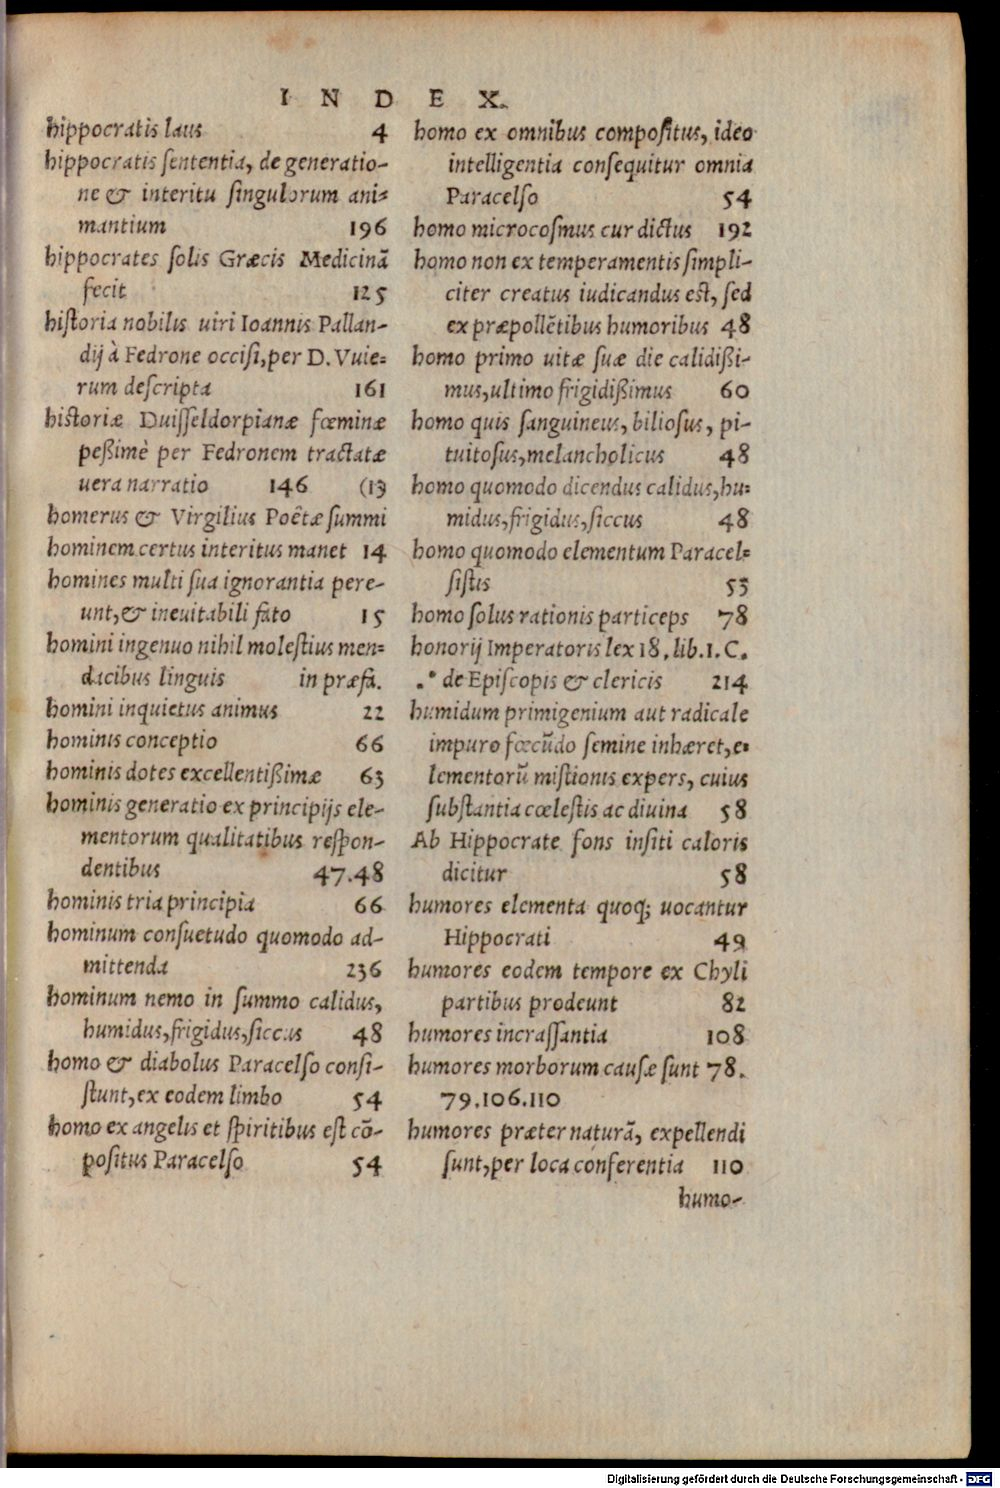 INDEX.
hippocratis laus 4
hippocratis sententia, de generatio-
ne & interitu singulorum ani-
mantium 196
hippocrates solis Græcis Medicinā
fecit 125
historia nobilis uiri Ioannis Pallan-
dij à Fedrone occisi, per D. Vuie-
rum descripta 161
historiæ Duisseldorpianæ fœminæ
peßimè per Fedronem tractatæ
uera narratio 146 (13
homerus & Virgilius Poêtæ summi
hominem certus interitus manet 14
homines multi sua ignorantia pere-
unt, & ineuitabili fato 15
homini ingenuo nihil molestius men-
dacibus linguis in præfa.
homini inquietus animus 22
hominis conceptio 66
hominis dotes excellentißimæ 63
hominis generatio ex principijs ele-
mentorum qualitatibus respon-
dentibus 47.48
hominis tria principia 66
hominum consuetudo quomodo ad-
mittenda 236
hominum nemo in summo calidus,
humidus, frigidus, siccus 48
homo & diabolus Paracelso consi-
stunt, ex eodem limbo 54
homo ex angelis et spiritibus est cō-
positus Paracelso 54
homo ex omnibus compositus, ideo
intelligentia consequitur omnia
Paracelso 54
homo microcosmus cur dictus 192
homo non ex temperamentis simpli-
citer creatus iudicandus est, sed
ex præpollētibus humoribus 48
homo primo uitæ suæ die calidißi-
mus, ultimo frigidißimus 60
homo quis sanguineus, biliosus, pi-
tuitosus, melancholicus 48
homo quomodo dicendus calidus, hu-
midus, frigidus, siccus 48
homo quomodo elementum Paracel-
sistis 53
homo solus rationis particeps 78
honorij Imperatoris lex 18. lib. 1. C.
de Episcopis & clericis 214
humidum primigenium aut radicale
impuro fœcūdo semine inhæret, e-
lementorū mistionis expers, cuius
substantia cœlestis ac diuina 58
Ab Hippocrate fons insiti caloris
dicitur 58
humores elementa quoq; uocantur
Hippocrati 49
humores eodem tempore ex Chyli
partibus prodeunt 82
humores incrassantia 108
humores morborum causæ sunt 78.
79.106.110
humores præter naturā, expellendi
sunt, per loca conferentia 110
humo-
Digitalisierung gefördert durch die Deutsche Forschungsgemeinschaft - DFG